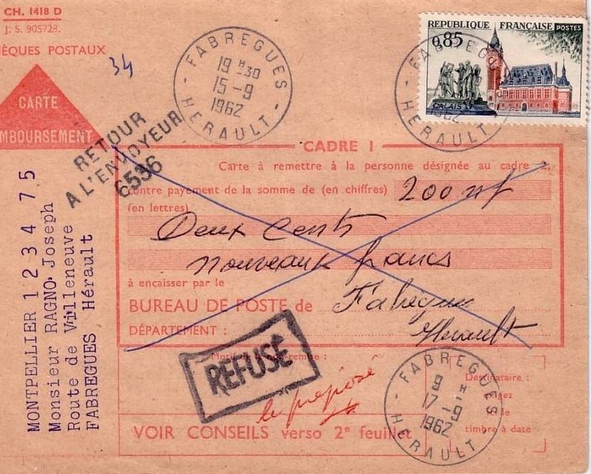 CH. 1418 D
J. S. 905728.
HÈQUES POSTAUX
34
CARTE
MBOURSEMENT
RETOUR
A L'ENVOYEUR
6536
FABREGUES
19 H30
15 - 9
1962
HERAULT
REPUBLIQUE FRANÇAISE POSTES
0,85
CALAIS
FABREGUES
1962
HERAULT
CADRE I
Carte à remettre à la personne désignée au cadre 2
contre payement de la somme de (en chiffres) 200 nf
(en lettres)
Deux Cents
nouveaux francs
à encaisser par le
BUREAU DE POSTE de Fabregues
DÉPARTEMENT : Herault
REFUSÉ
le préposé
FABREGUES
9 H
17 - 9
1962
HERAULT
Destinataire :
timbre à date
VOIR CONSEILS verso 2e feuillet
MONTPELLIER 1 2 3 4 7 5
Monsieur RAGNO Joseph
Route de Villeneuve
FABREGUES Hérault